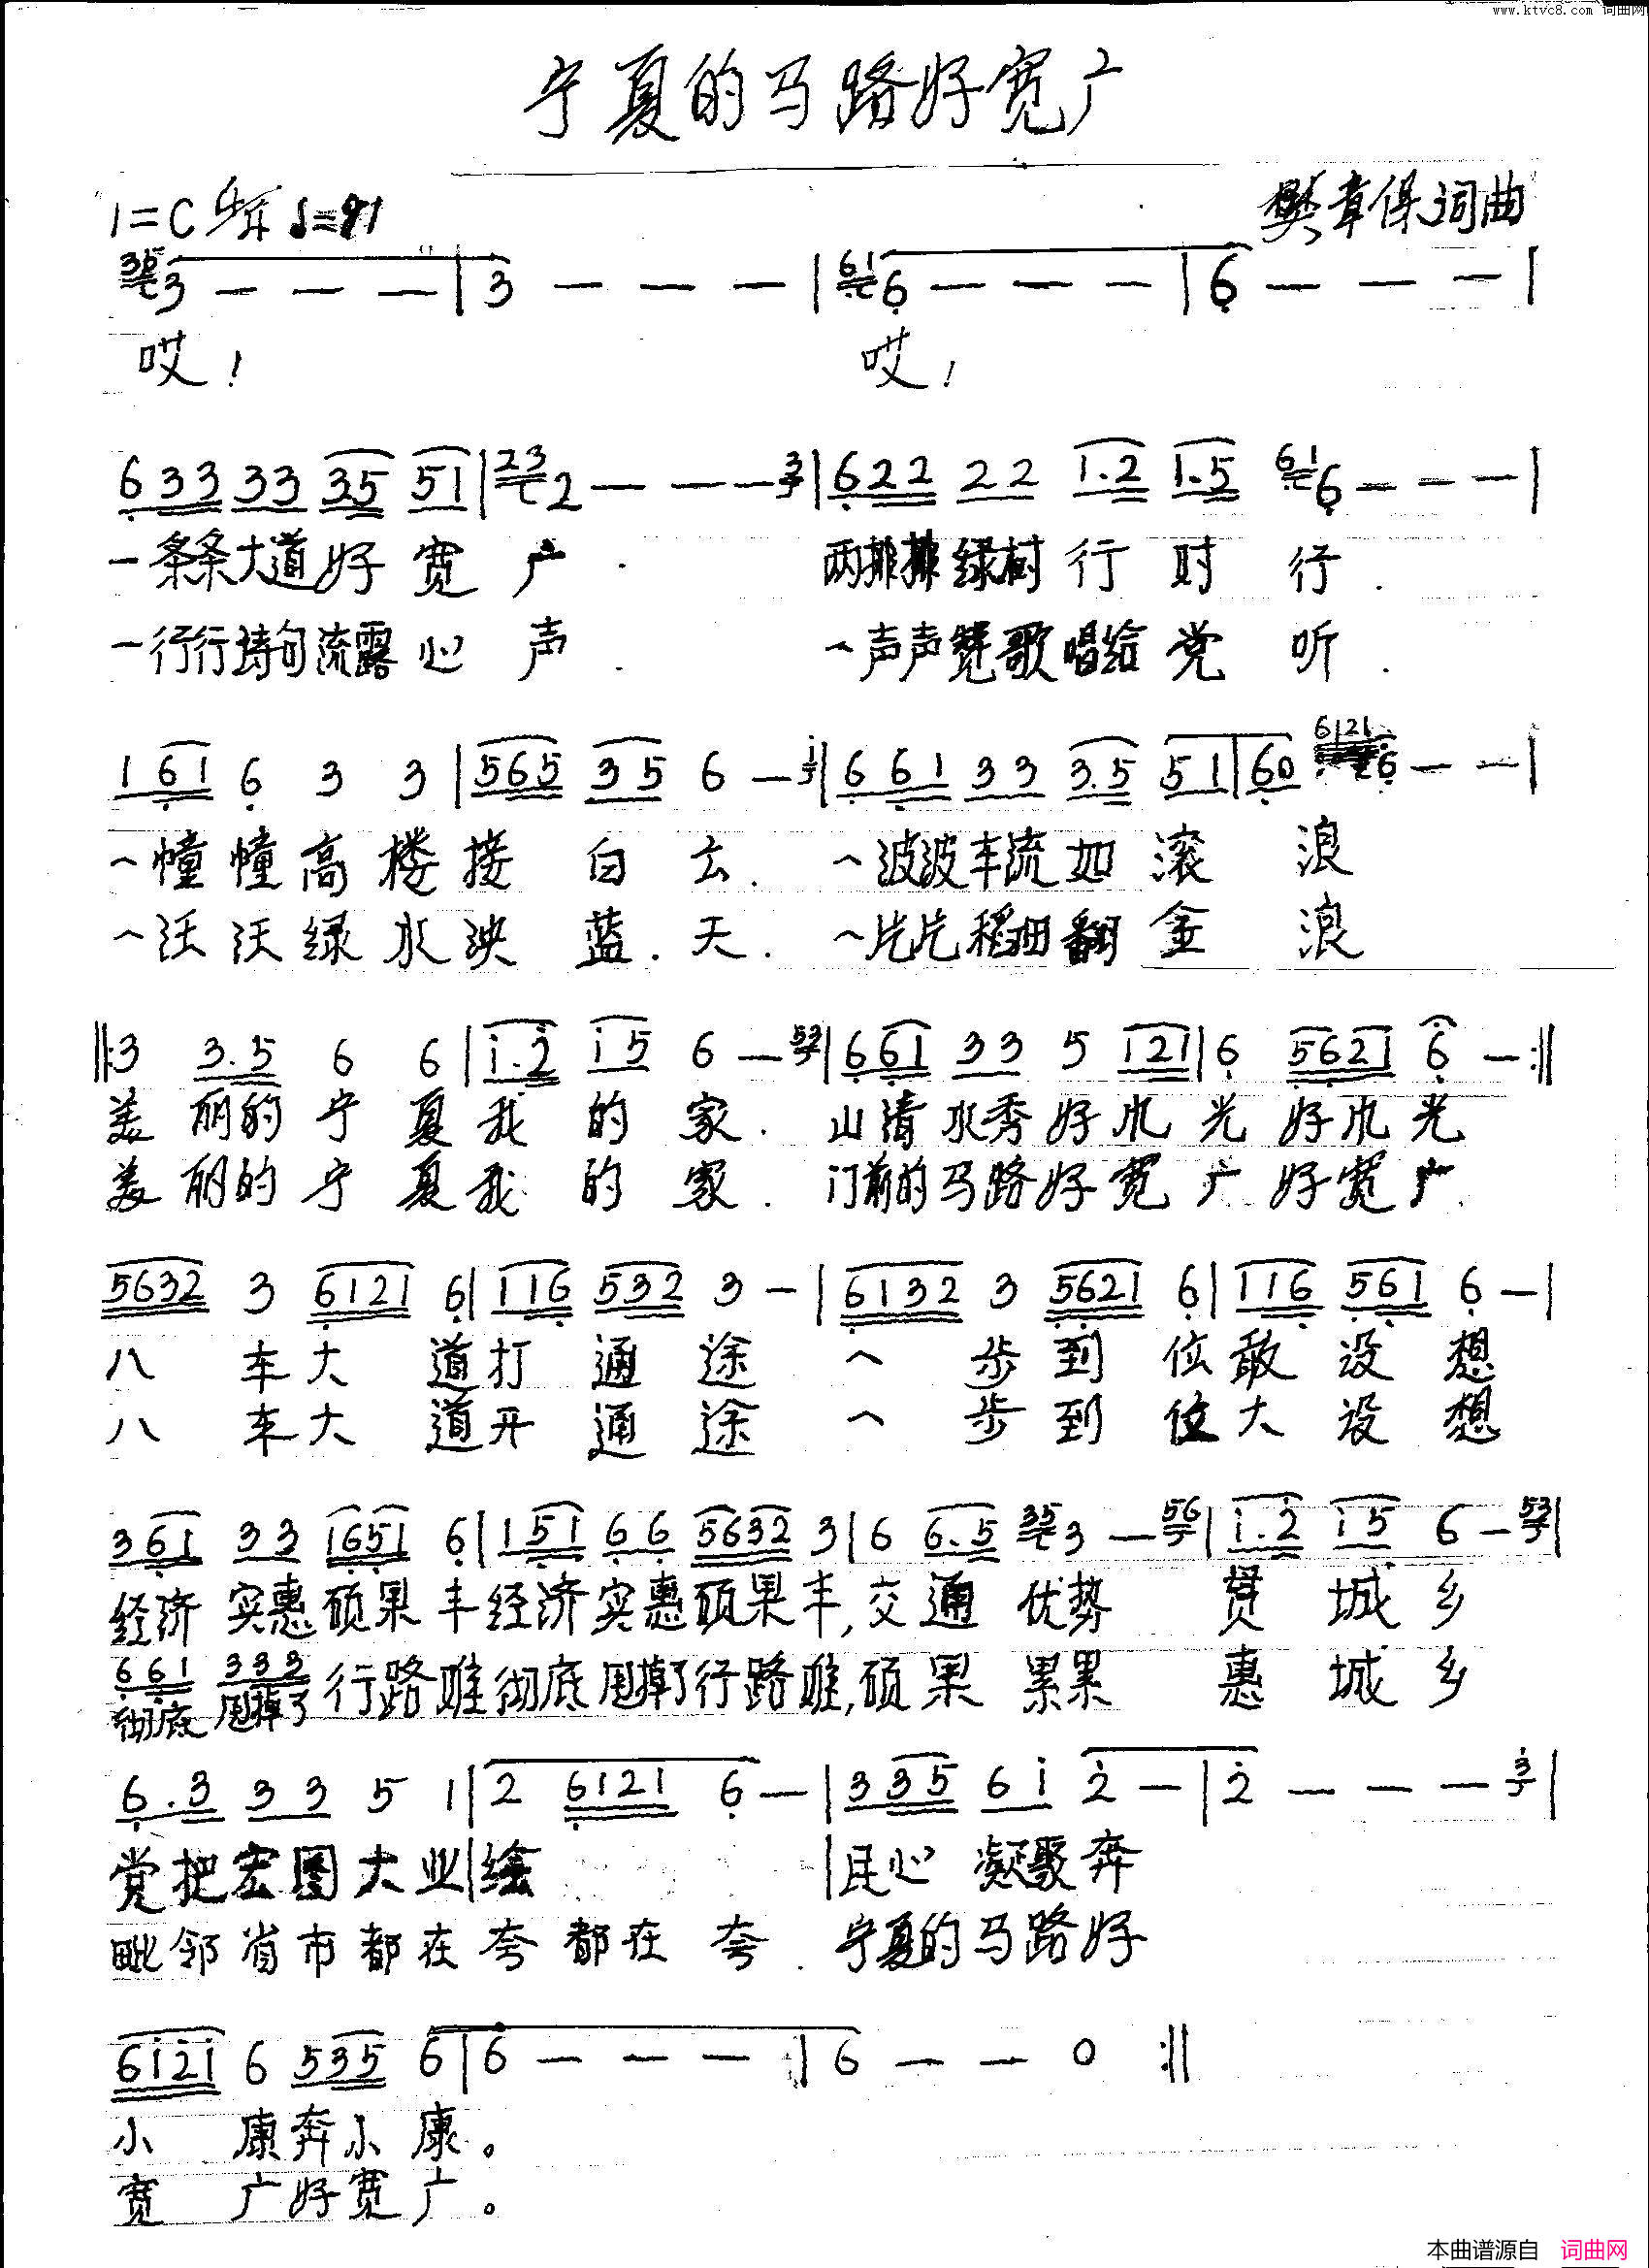 www.ktvc8.com 词曲网
宁夏的马路好宽广
1=C
樊章保词曲
3 — — — | 3 — — — | 6 — — — | 6 — — — |
哎! 哎!
6 3 3 3 3 3 5 5 1 | 2 3 2 — — — 3 | 6 2 2 2 2 1.2 1.5 6 1 6 — — — |
一条条大道好宽广. 两排排绿树行对行.
一行行诗句流露心声. 一声声赞歌唱给党听.
1 6 1 6 3 3 | 5 6 5 3 5 6 — 1 | 6 6 1 3 3 3.5 5 1 | 6 0 6 1 2 1 6 — — |
一幢幢高楼接白云. 一波波车流如滚浪
一沃沃绿水泱蓝.天. 一片片稻田翻金浪
‖: 3 3.5 6 6 | 1.2 1 5 6 — 5 3 | 6 6 1 3 3 5 1 2 1 | 6 5 6 2 1 6 — :‖
美丽的宁夏我的家. 山清水秀好水光好水光
美丽的宁夏我的家. 门前的马路好宽广好宽广.
5 6 3 2 3 6 1 2 1 6 | 1 1 6 5 3 2 3 — | 6 1 3 2 3 5 6 2 1 6 | 1 1 6 5 6 1 6 — |
八车大道打通途一步到位敢设想
八车大道开通途一步到位大设想
3 6 1 3 3 1 6 5 1 6 | 1 5 1 6 6 5 6 3 2 3 | 6 6.5 3 5 3 — 5 6 | 1.2 1 5 6 — 5 3 |
经济实惠硕果丰经济实惠硕果丰,交通优势贯城乡
6 6 1 3 3 3 行路难彻底甩掉了行路难,硕果累累惠城乡
彻底甩掉了
6.3 3 3 5 1 | 2 6 1 2 1 6 — | 3 3 5 6 1 2 — | 2 — — — 3 |
党把宏图大业|绘 |民心凝聚奔
毗邻省市都在夸都在夸. 宁夏的马路好
6 1 2 1 6 5 3 5 6 | 6 — — — | 6 — — 0 :‖
小康奔小康。
宽广好宽广。
本曲谱源自 词曲网